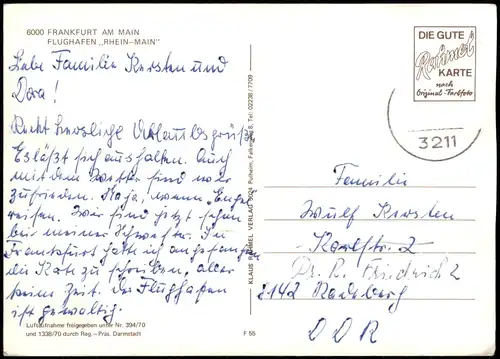 6000 FRANKFURT AM MAIN
FLUGHAFEN „RHEIN-MAIN"
Liebe Familie Kersten und
Dora!
Recht herzliche Urlaubsgrüße
Es läßt sich aushalten. Auch
mit dem Wetter sind wir
zufrieden. Na ja, wenn Engel
reisen. Wir sind jetzt schon
bei meiner Schwester. In
Frankfurt hatte ich angefangen
die Karte zu schreiben, aber
keine Zeit. Der Flughafen
ist gewaltig.
Luftaufnahme freigegeben unter Nr. 394/70
und 1338/70 durch Reg.-Präs. Darmstadt
F 55
KLAUS RAHMEL VERLAG 5024 Pulheim, Tel. 02238/7709
DIE GUTE
Rahmel
KARTE
nach
Original-Farbfoto
3211
Familie
Wulf Kersten
Karlstr. 2
Dr. R. Friedrich 2
8142 Radeberg
DDR